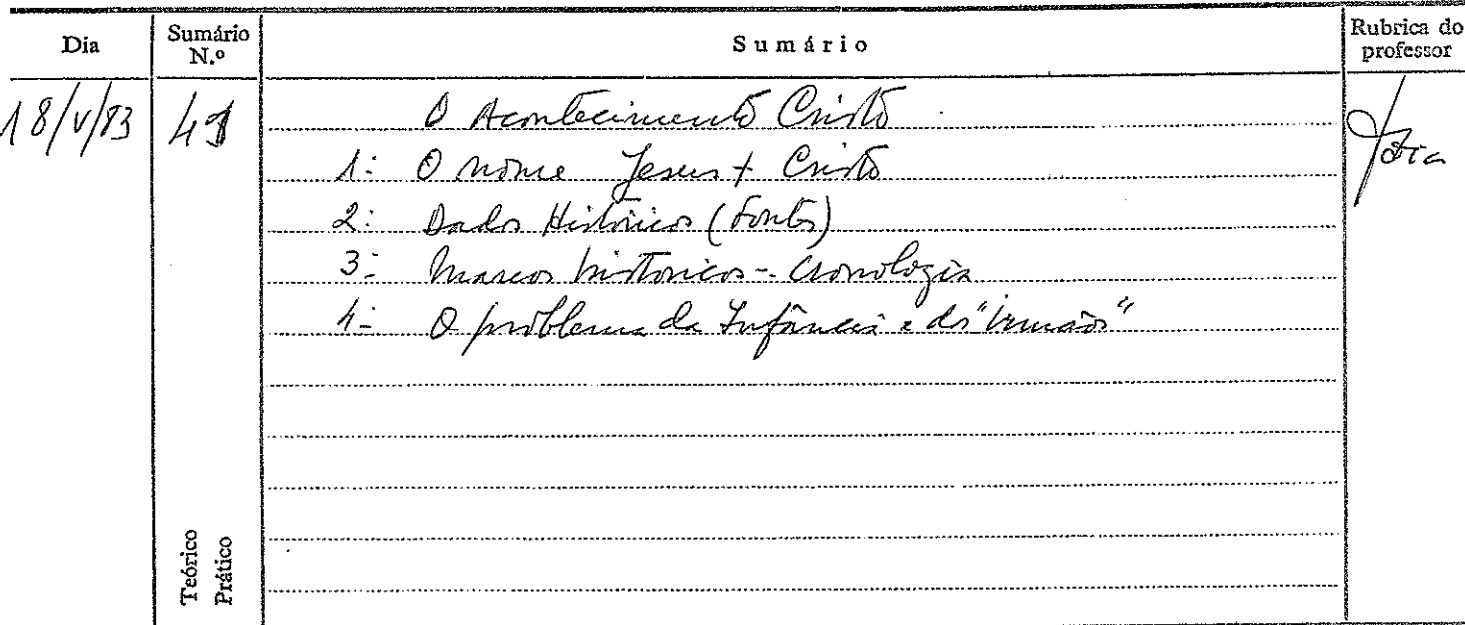 Dia
Sumário N.º
Sumário
Rubrica do professor
18/V/83
O Acontecimento Cristo
1: O nome Jesus + Cristo
2: Dados Históricos (Fontes)
3- Marcos históricos - Cronologia
4- O problema da Infância e dos "irmãos"
Teórico
Prático